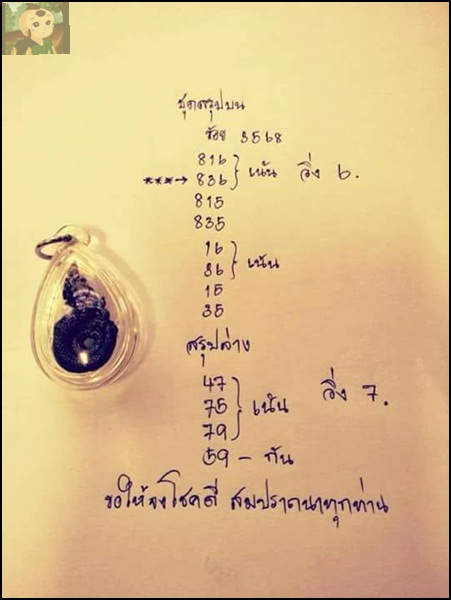 ชุดสรุปบน
ร้อย 3568
816
***→ 836 } เน้น วิ่ง 6.
815
835
16
36 } เน้น
15
35
สรุปล่าง
47
75 } เน้น วิ่ง 7.
79
59 - กัน
ขอให้จงโชคดี สมปรารถนาทุกท่าน